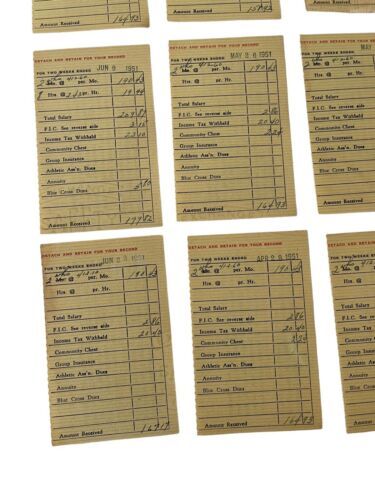 Amount Received 164 93
Amount Received 157 93
DETACH AND RETAIN FOR YOUR RECORD
FOR TWO WEEKS ENDED JUN 9 1951
2 Mo. @ per. Mo. 190 63
8 Hrs. @ per. Hr. 19 44
Total Salary
F.I.C. See reverse side
Income Tax Withheld 23 10
Community Chest
Group Insurance
Athletic Ass'n. Dues
Annuity
Blue Cross Dues
Amount Received
DETACH AND RETAIN FOR YOUR RECORD
FOR TWO WEEKS ENDED MAY 26 1951
2 Mo. @ per. Mo. 190 63
Hrs. @ per. Hr.
Total Salary
F.I.C. See reverse side 2 86
Income Tax Withheld 20 40
Community Chest 2 24
Group Insurance
Athletic Ass'n. Dues
Annuity
Blue Cross Dues
Amount Received 164 93
DETACH AND
FOR TWO WEEKS
2 Mo. @
Hrs. @
Total Salary
F.I.C. See
Income Tax
Community
Group Insurance
Athletic
Annuity
Blue Cross
Amount
DETACH AND RETAIN FOR YOUR RECORD
FOR TWO WEEKS ENDED JUN 23 1951
2 Mo. @ per. Mo. 190 63
Hrs. @ per. Hr.
Total Salary
F.I.C. See reverse side 2 86
Income Tax Withheld 20 40
Community Chest
Group Insurance
Athletic Ass'n. Dues
Annuity
Blue Cross Dues
Amount Received 167 17
DETACH AND RETAIN FOR YOUR RECORD
FOR TWO WEEKS ENDED APR 28 1951
2 Mo. @ per. Mo. 190 63
Hrs. @ per. Hr.
Total Salary
F.I.C. See reverse side 2 86
Income Tax Withheld 20 40
Community Chest 2 24
Group Insurance
Athletic Ass'n. Dues
Annuity
Blue Cross Dues
Amount Received 164 93
DETACH AND
FOR TWO
2 Mo. @
Hrs. @
Total Salary
F.I.C. See
Income Tax
Community
Group
Athletic
Annuity
Blue Cross
Amount